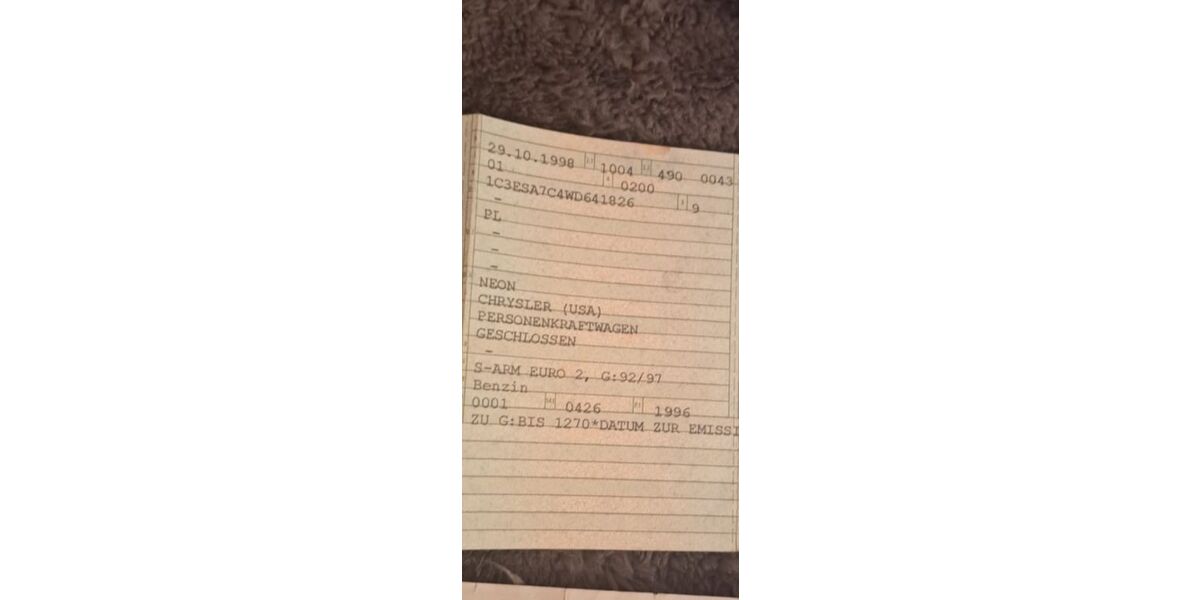 29.10.1998 1004 490 0043
01 0200
1C3ESA7C4WD641826 9
-
PL
-
-
-
NEON
CHRYSLER (USA)
PERSONENKRAFTWAGEN
GESCHLOSSEN
-
S-ARM EURO 2, G:92/97
Benzin
0001 0426 1996
ZU G:BIS 1270*DATUM ZUR EMISSI